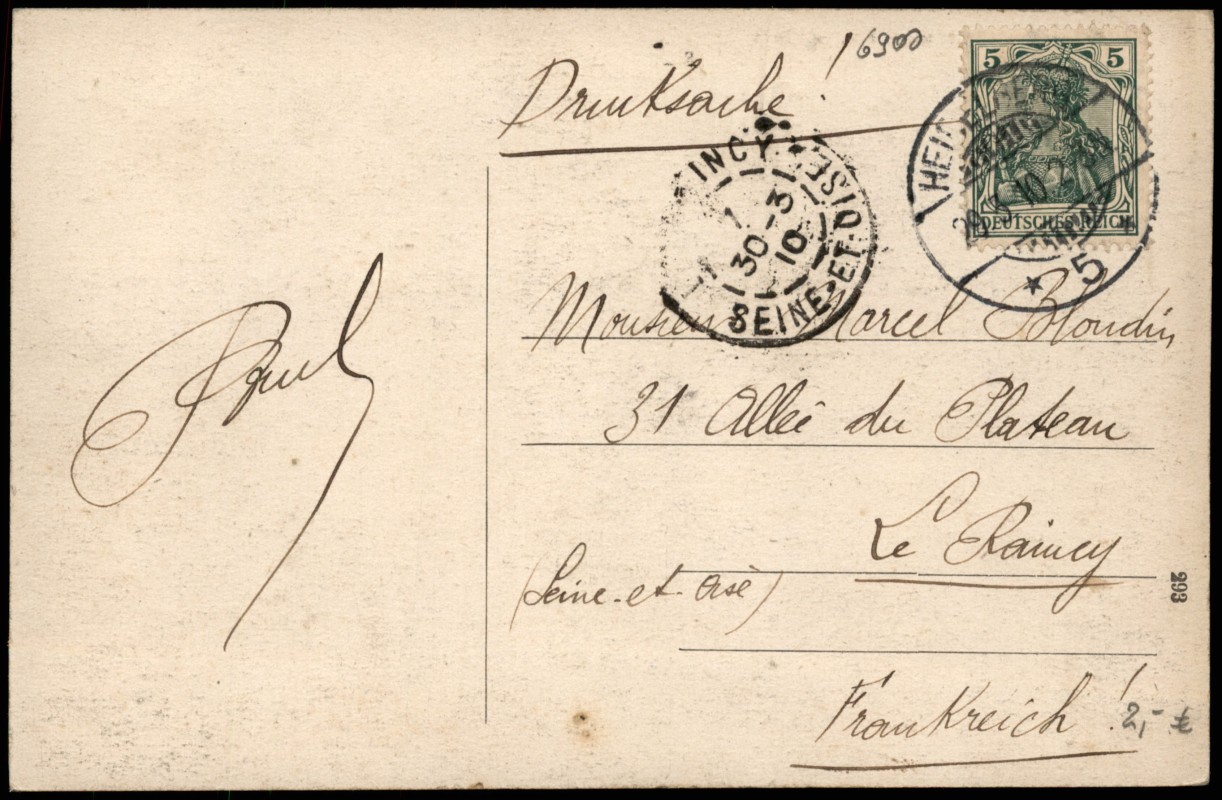 Drucksache!
! 6900
5 5
DEUTSCHES REICH
HEIDELBE
29.3.10
* 5
INCY
SEINE-ET-OISE
1
30-3
10
Monsieur Marcel Blondin
31 Allée du Plateau
Le Raincy
(Seine-et-Oise)
Frankreich!
2,- €
293